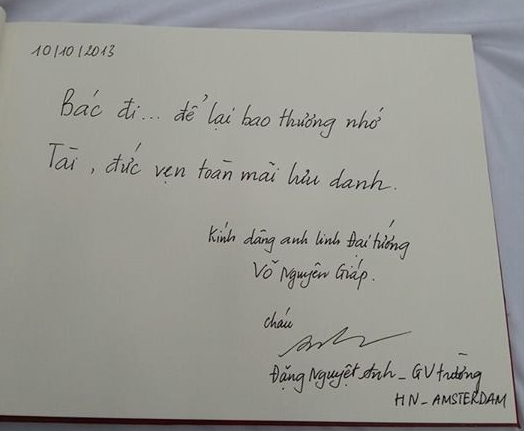 10/10/2013
Bác đi... để lại bao thương nhớ
Tài, đức vẹn toàn mãi lưu danh.
Kính dâng anh linh Đại tướng
Võ Nguyên Giáp.
cháu
Đặng Nguyệt Anh - GV trường
HN - AMSTERDAM